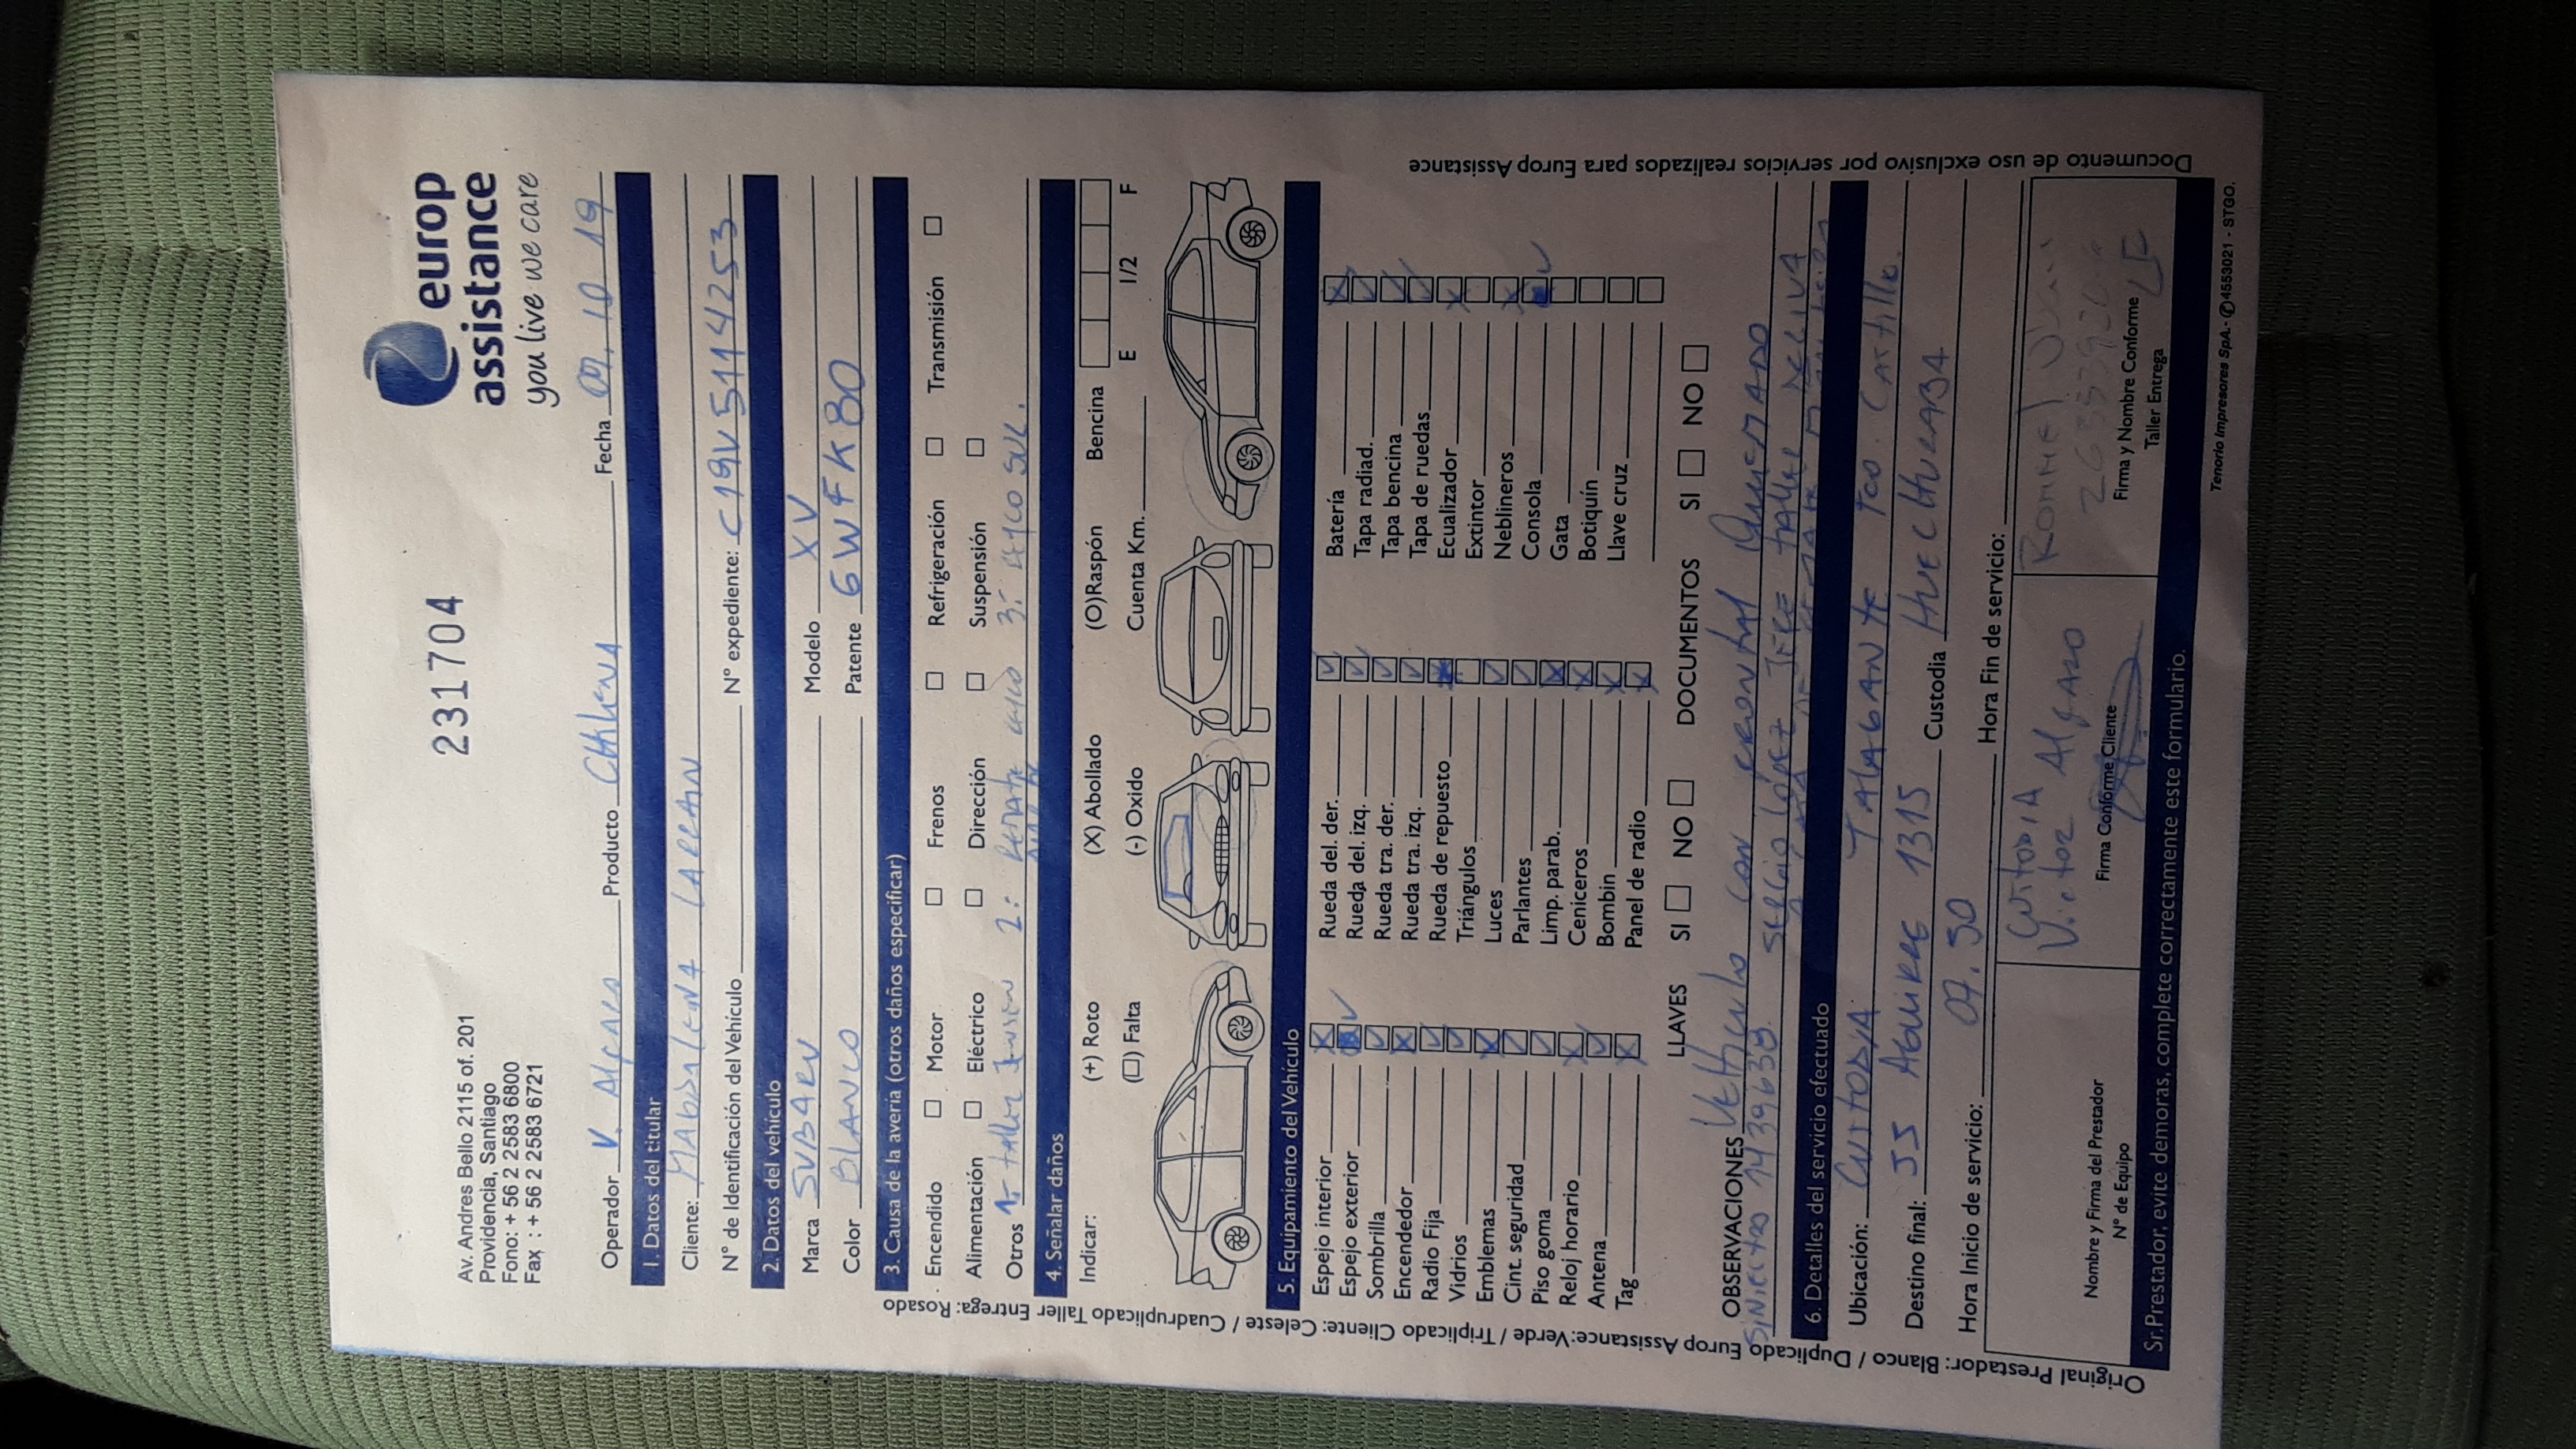 231704
europ
assistance
you live we care
Av. Andres Bello 2115 of. 201
Providencia, Santiago
Fono: + 56 2 2583 6800
Fax : + 56 2 2583 6721
Operador V. Alfaro Producto Chilena Fecha 09. 10 19
1. Datos del titular
Cliente: Magdalena Larrain
N° de Identificación del Vehículo N° expediente: C19V5114253
2. Datos del vehículo
Marca SUBARU Modelo XV
Color BLANCO Patente GWFK80
3. Causa de la avería (otros daños especificar)
Encendido Motor Frenos Refrigeración Transmisión
Alimentación Eléctrico Dirección Suspensión
Otros 1- taller 2: 3-
4. Señalar daños
Indicar: (+) Roto (X) Abollado (O)Raspón Bencina
(□) Falta (-) Oxido Cuenta Km. E 1/2 F
5. Equipamiento del Vehículo
Espejo interior Rueda del. der. Batería
Espejo exterior Rueda del. izq. Tapa radiad.
Sombrilla Rueda tra. der. Tapa bencina
Encendedor Rueda tra. izq. Tapa de ruedas
Radio Fija Rueda de repuesto Ecualizador
Vidrios Triángulos Extintor
Emblemas Luces Neblineros
Cint. seguridad Parlantes Consola
Piso goma Limp. parab. Gata
Reloj horario Ceniceros Botiquín
Antena Bombin Llave cruz
Tag Panel de radio
LLAVES SI NO DOCUMENTOS SI NO
OBSERVACIONES Vehiculo con frontal Quemado
Siniestro 1439638. Sergio López Jefe taller
6. Detalles del servicio efectuado
Ubicación: Custodia TALAGANTE
Destino final: JJ AGUIRRE 1315 Custodia HUECHURABA
Hora Inicio de servicio: 07.30 Hora Fin de servicio:
Custodia
Victor Alfaro
Nombre y Firma del Prestador
N° de Equipo
Firma Conforme Cliente
Firma y Nombre Conforme
Taller Entrega
Sr. Prestador, evite demoras, complete correctamente este formulario.
Tenorio Impresores SpA.- ✆4553021 - STGO.
Original Prestador: Blanco / Duplicado Europ Assistance: Verde / Triplicado Cliente: Celeste / Cuadruplicado Taller Entrega: Rosado
Documento de uso exclusivo por servicios realizados para Europ Assistance